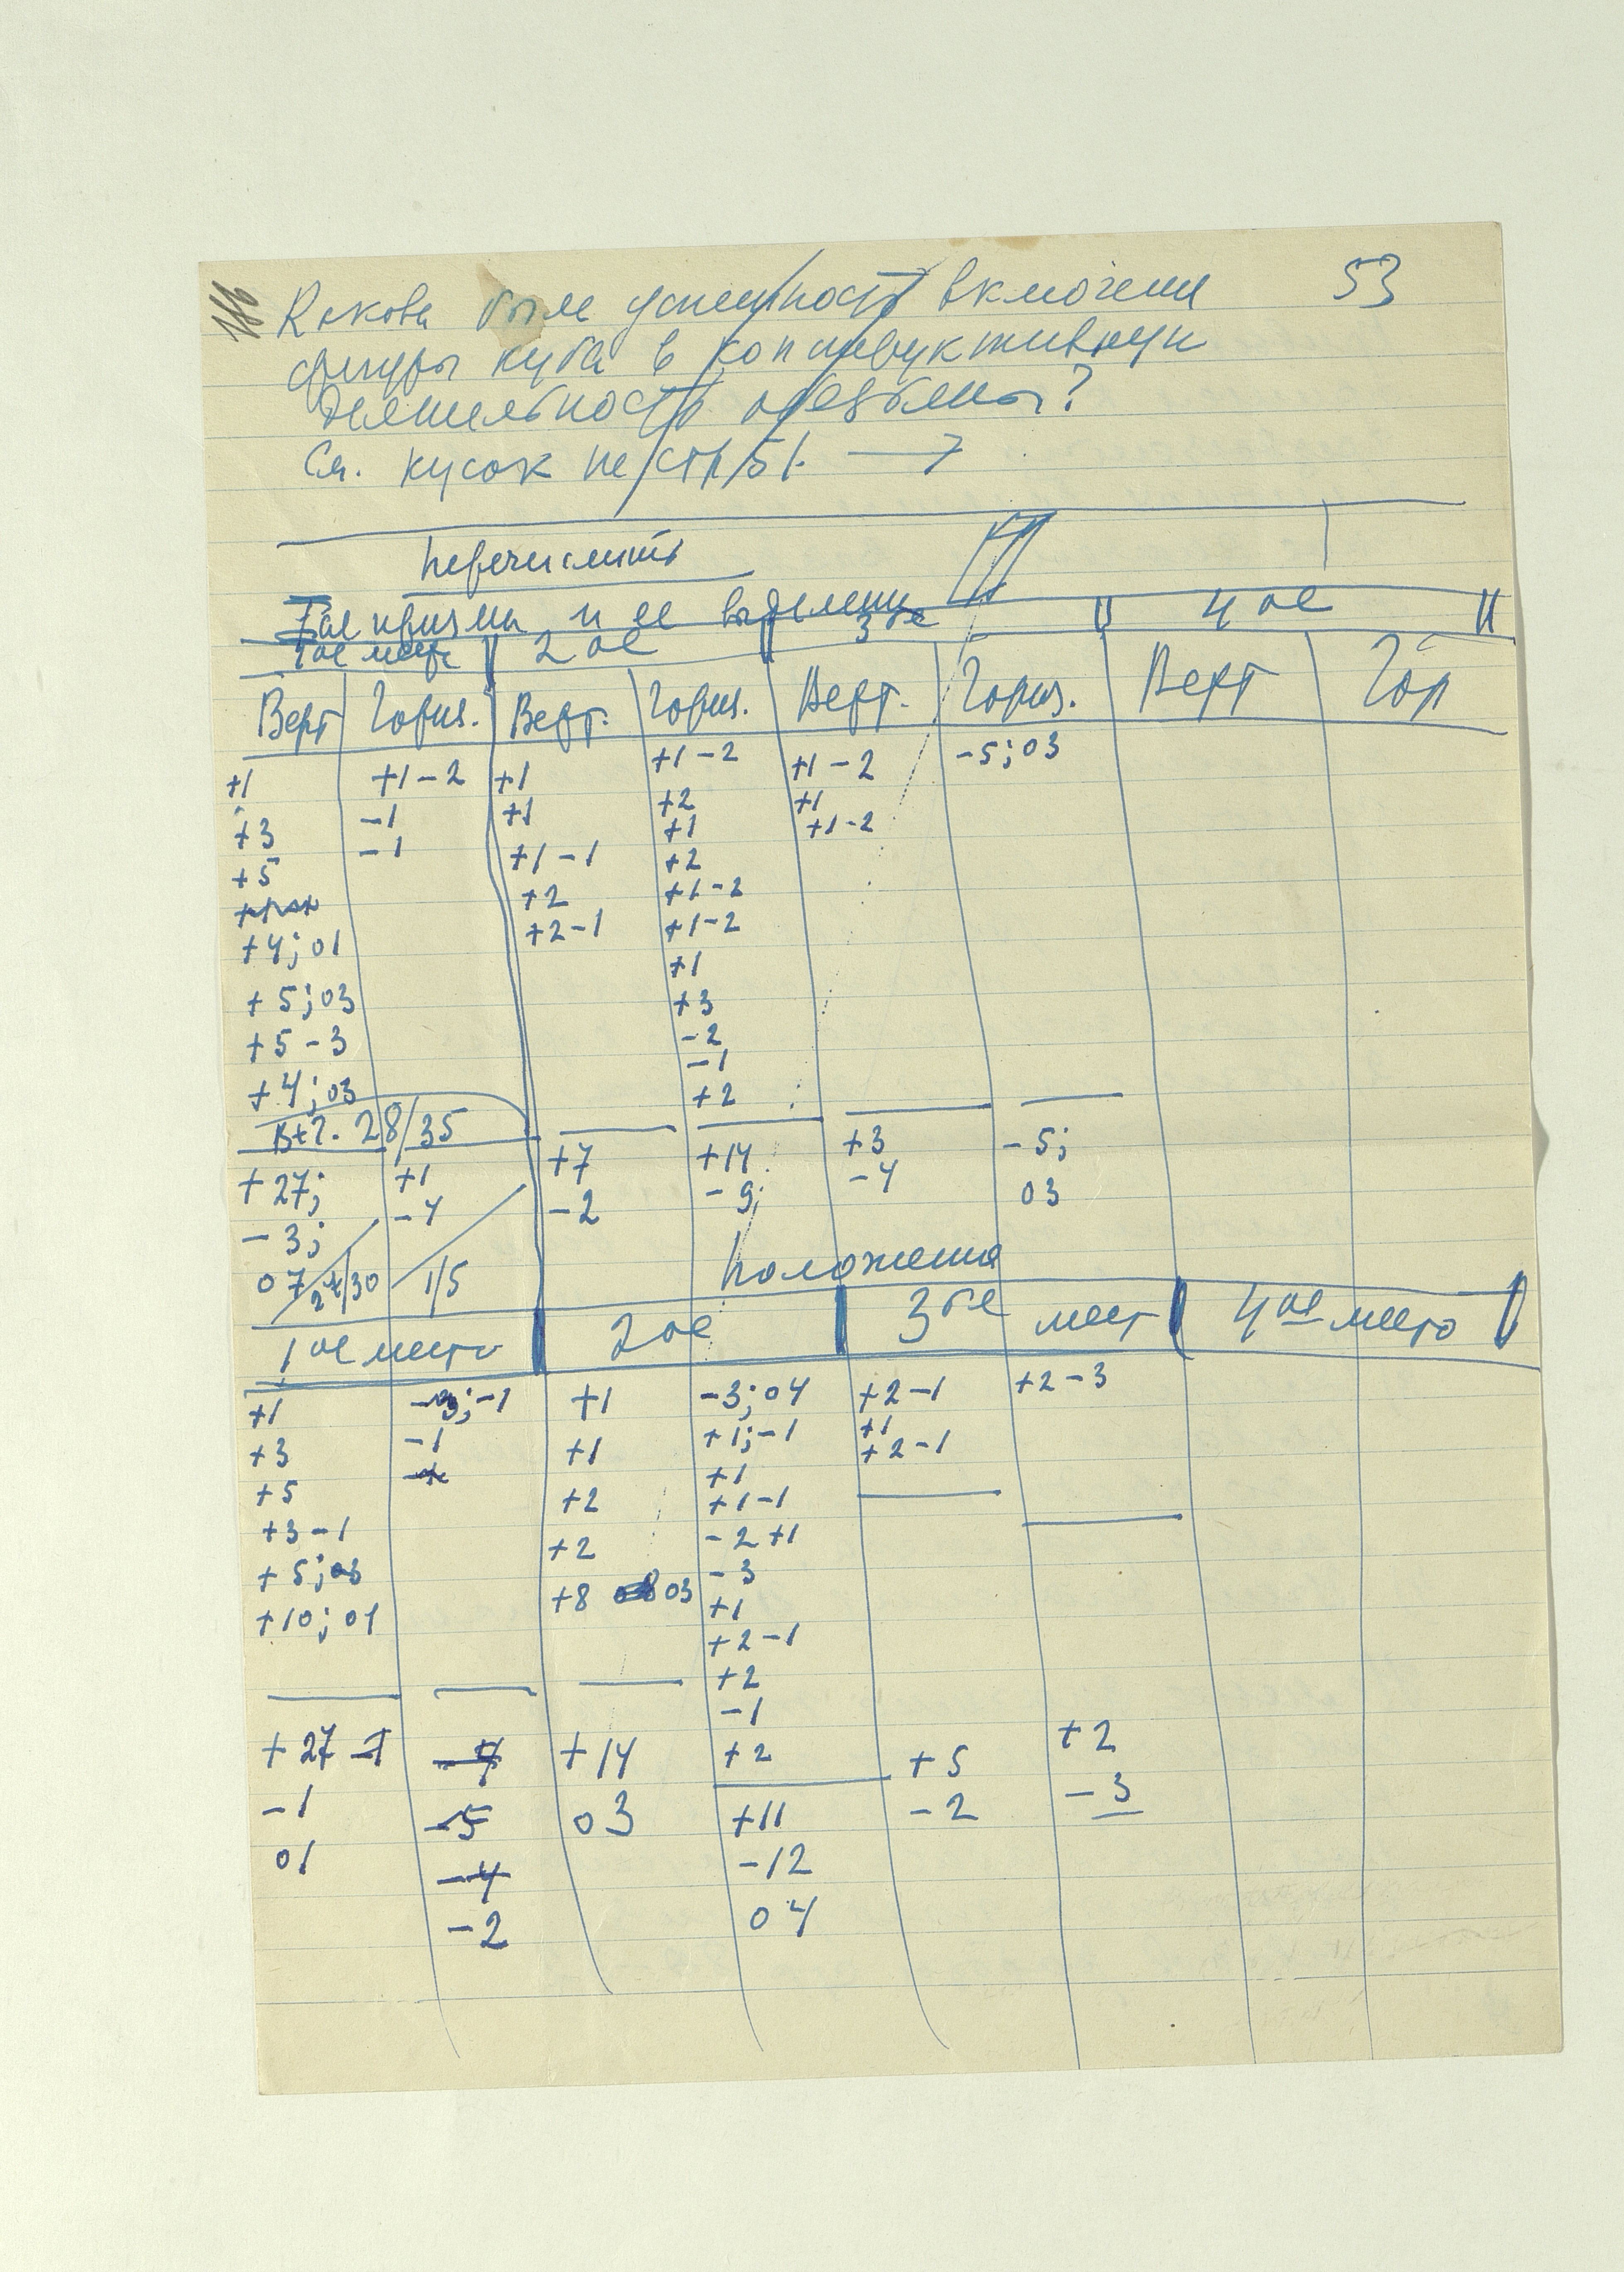 53
Какова была успешность включения
фигуры куба в конструктивную
деятельность обезьяны?
См. кусок на стр 51. →
Перечислить
призмы и ее выделении
1ое место 2ое 3ье 4ое
Верт Гориз. Верт. Гориз. Верт. Гориз. Верт Гор
+1 +1-2 +1 +1-2 +1-2 -5;03
+3 -1 +1 +2 +1
+5 -1 +1-1 +1 +1-2
+4;01 +2 +2
+5;03 +2-1 +1-2
+5-3 +1-2
+4;03 +1
+3
-2
-1
+2
28/35
+27; +1 +7 +14 +3 -5;
-3; -4 -2 -9; -4 03
07 27/30 1/5
Положения
1ое место 2ое 3ье мест 4ое место
+1 -3;-1 +1 -3;04 +2-1 +2-3
+3 -1 +1 +1;-1 +1
+5 +2 +1 +2-1
+3-1 +2 +1-1
+5;03 +8 03 -2+1
+10;01 -3
+1
+2-1
+2
-1
+2
+27 -4 +14 +11 +5 +2
-1 -5 03 -12 -2 -3
01 -4 04
-2